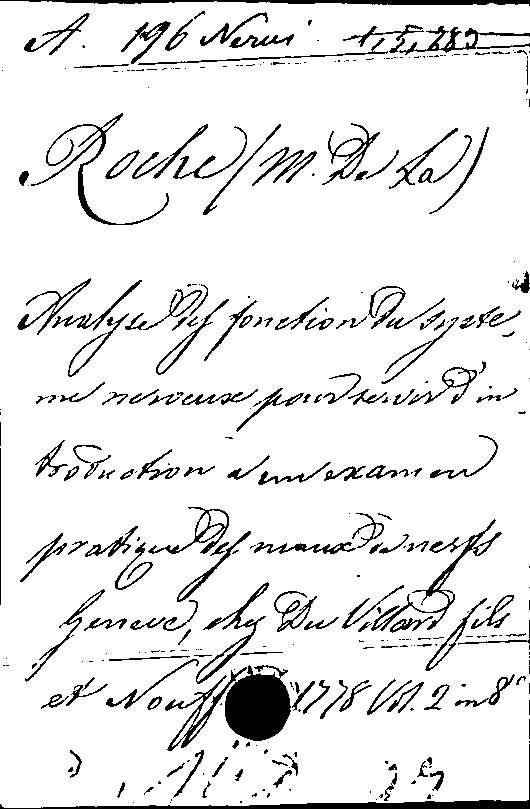 A. 196 Nervi 4,5,283
Roche (M. De La)
Analyse des fonction du syste-
me nerveux pour servir d'in-
troduction a un examen
pratique des maux de nerfs
Geneve, chez Du Villard fils
et Nouff 1778 Vol. 2 in 8°